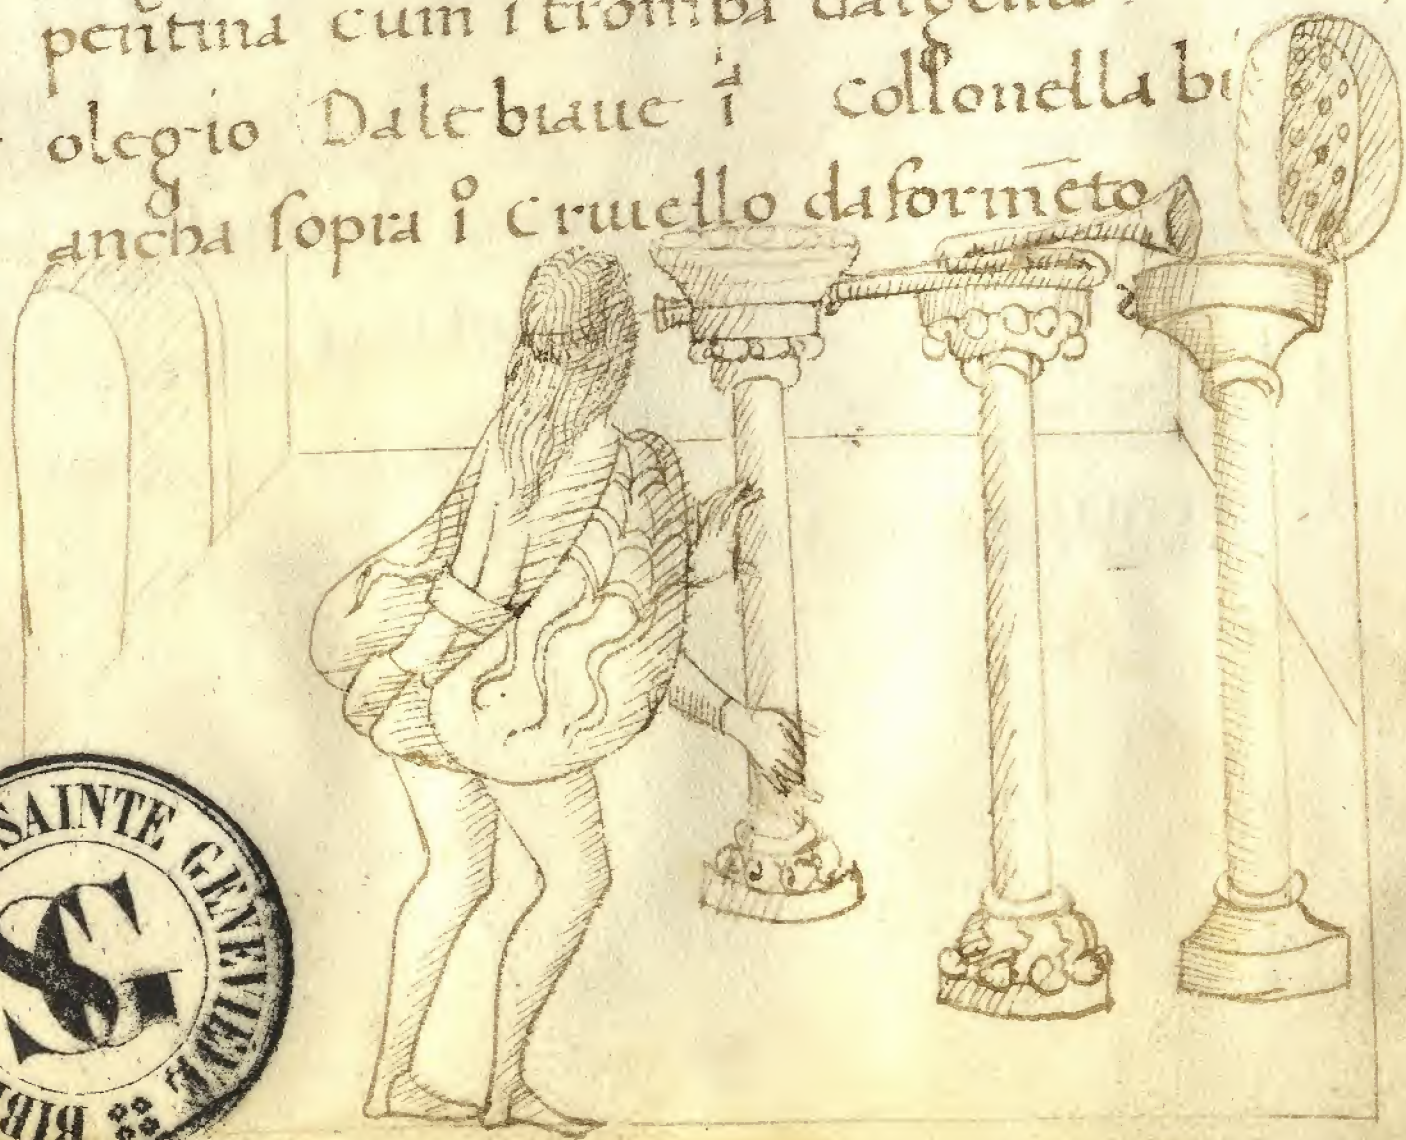 pentina cum i tromba dargento
olegio Dale biaue i collonella bi
ancha sopra i criuello da formēto
SAINTE GENEVIEVE
SG
BIBL